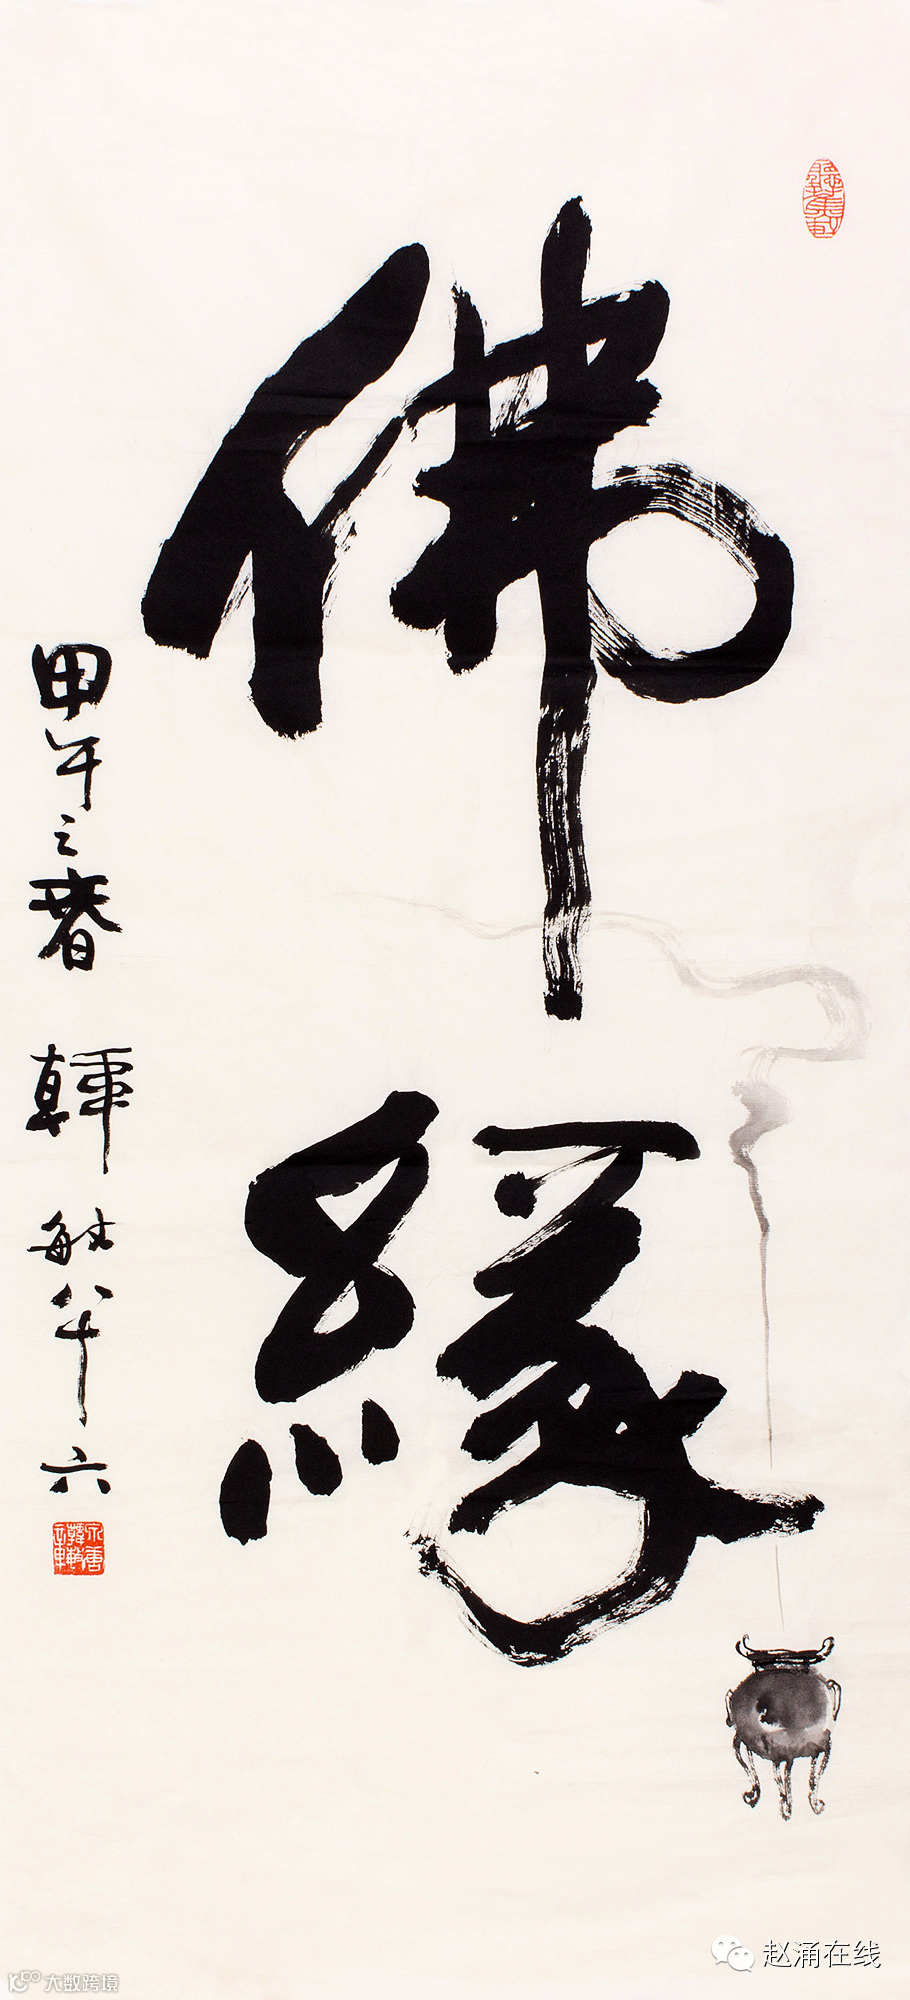 佛緣
甲午之春 韓敏八十六
赵涌在线
大数跨境